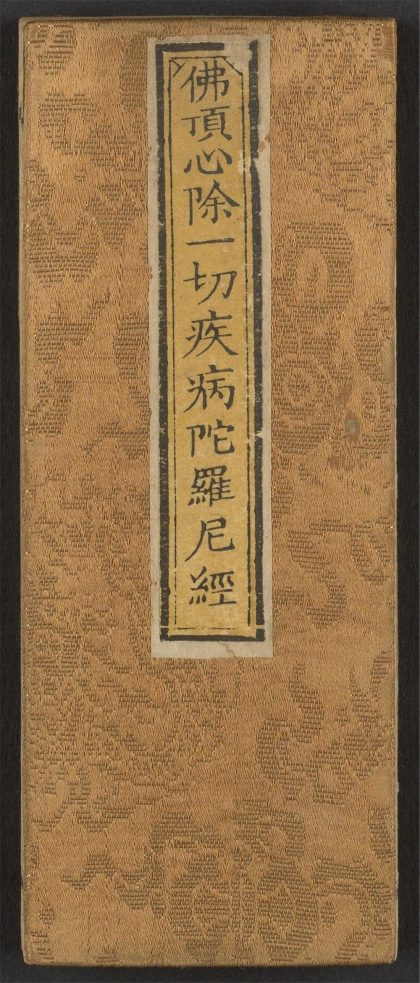 佛頂心除一切疾病陀羅尼經